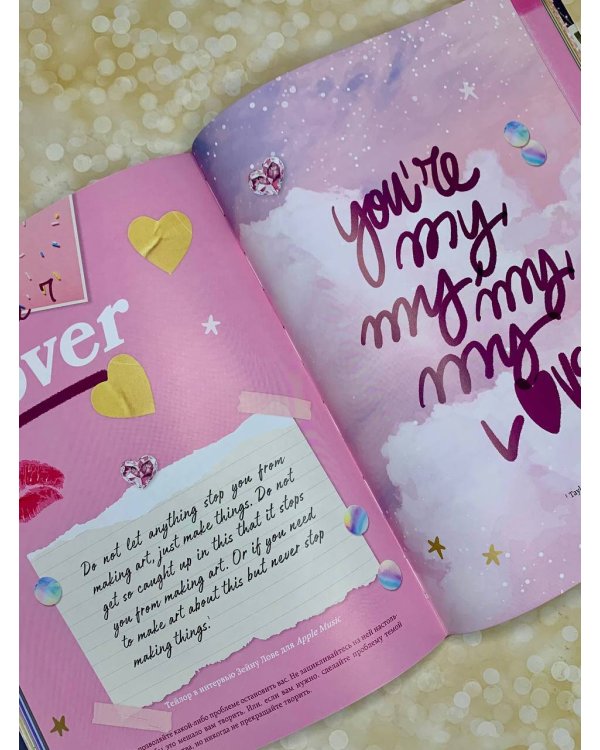 7
over
Do not let anything stop you from
making art, just make things. Do not
get so caught up in this that it stops
you from making art. Or if you need
to make art about this but never stop
making things.
Тейлор в интервью Зейну Лове для Apple Music
какой-либо проблеме остановить вас. Не зацикливайтесь на ней настоль-
это мешало вам творить. Или, если вам нужно, сделайте проблему темой
но никогда не прекращайте творить.
you're
my,
my my,
my